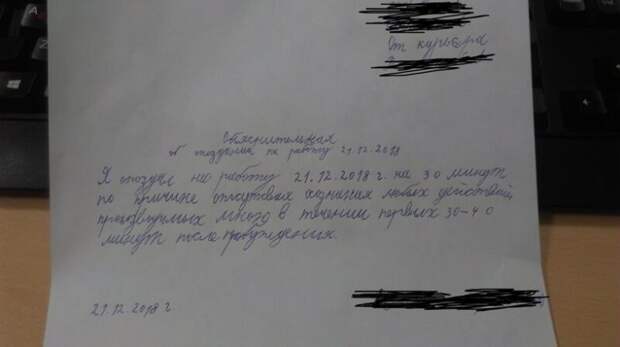 От курьера
Объяснительная
об опоздании на работу 21.12.2018
Я опоздал на работу 21.12.2018 г. на 30 минут
по причине отсутвия осознания любых действий,
производимых мною в течении первых 30-40
минут после пробуждения.
21.12.2018 г.